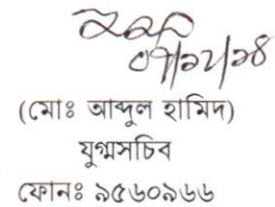 ০৭/১২/১৪
(মোঃ আব্দুল হামিদ)
যুগ্মসচিব
ফোনঃ ৯৫৬০৯৬৬